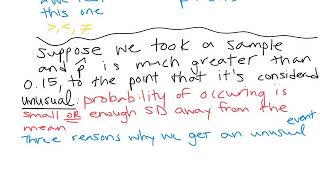 this one
>, <, ≠
Suppose we took a sample
and p̂ is much greater than
0.15, to the point that it's considerd
unusual: probability of occuring is
small OR enough SD away from the
mean
Three reasons why we get an unusual event